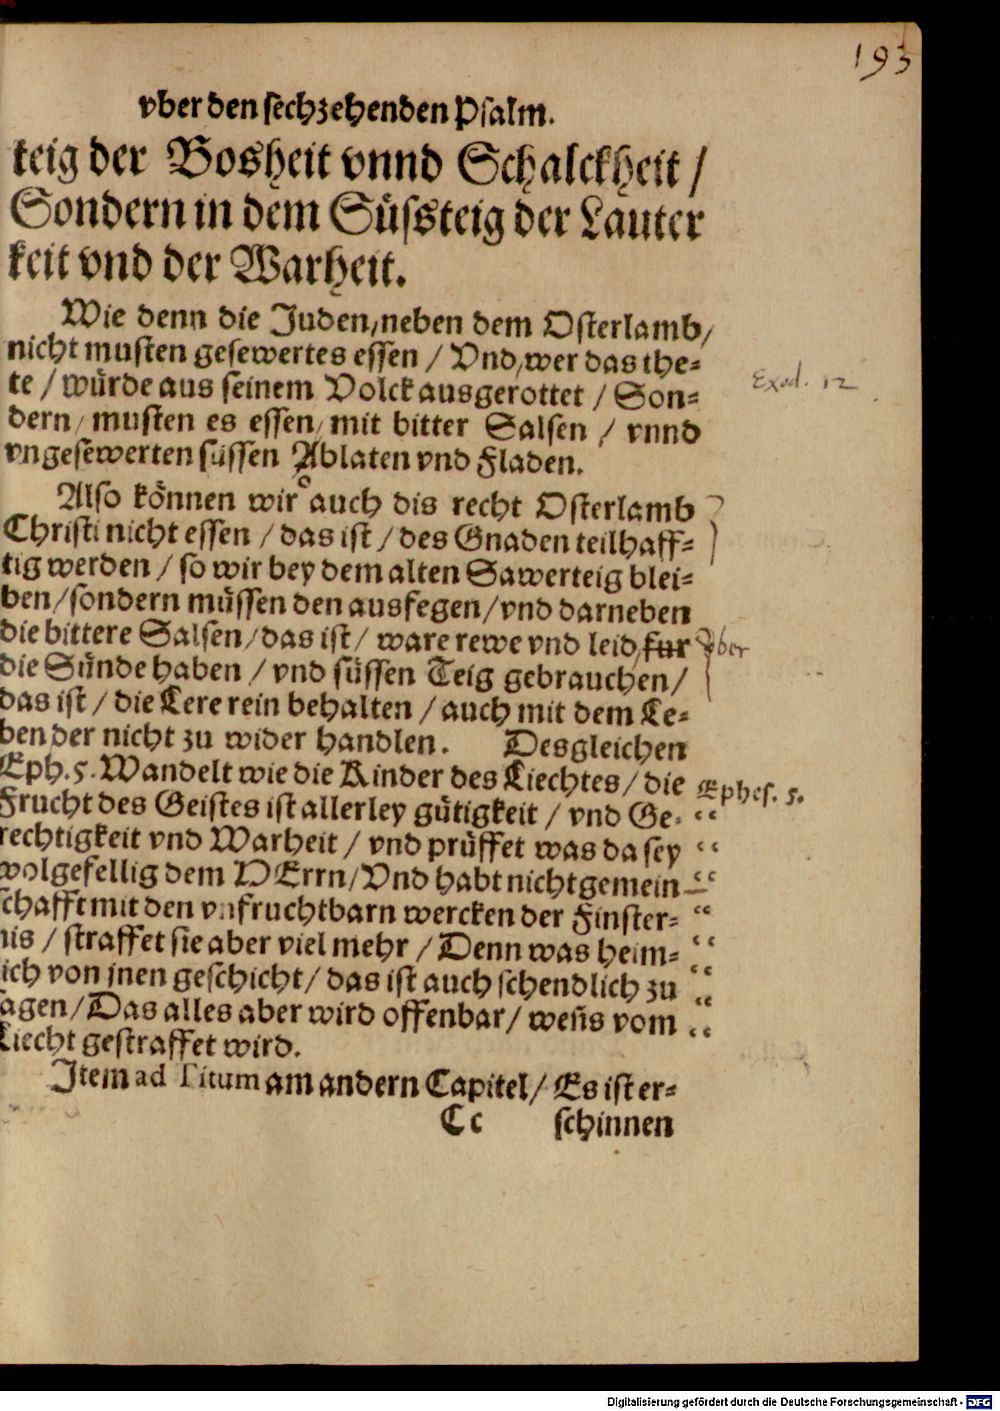 193
vber den sechzehenden Psalm.
teig der Bosheit vnnd Schalckheit /
Sondern in dem Süssteig der Lauter
keit vnd der Warheit.
Wie denn die Juden/neben dem Osterlamb/
nicht musten gesewertes essen / Vnd/wer das the-
te / würde aus seinem Volck ausgerottet / Son-
Exod. 12
dern / musten es essen/ mit bitter Salsen / vnnd
vngesewerten süssen Ablaten vnd Fladen.
Also können wir auch dis recht Osterlamb
Christi nicht essen / das ist / des Gnaden teilhaff-
tig werden / so wir bey dem alten Sawerteig blei-
ben/sondern müssen den ausfegen/vnd darneben
die bittere Salsen/das ist/ ware rewe vnd leid/fur
vber
die Sünde haben / vnd süssen Teig gebrauchen/
das ist / die Lere rein behalten / auch mit dem Le-
ben der nicht zu wider handlen. Desgleichen
Eph.5. Wandelt wie die Kinder des Liechtes/ die
Ephes. 5.
Frucht des Geistes ist allerley gütigkeit / vnd Ge-
rechtigkeit vnd Warheit / vnd prüffet was da sey
wolgefellig dem HErrn/Vnd habt nicht gemein
schafft mit den vnfruchtbarn wercken der Finster-
nis / straffet sie aber viel mehr / Denn was heim-
lich von jnen geschicht/ das ist auch schendlich zu
sagen/Das alles aber wird offenbar/ weñs vom
Liecht gestraffet wird.
Item ad Titum am andern Capitel/ Es ist er-
Cc schinnen
Digitalisierung gefördert durch die Deutsche Forschungsgemeinschaft - DFG